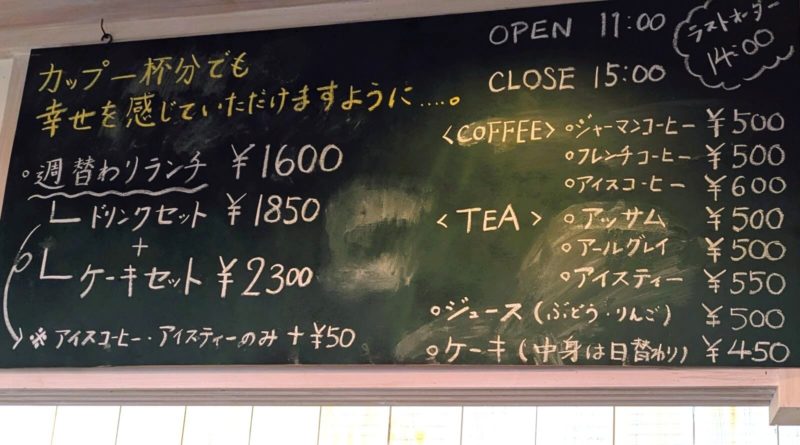 カップ一杯分でも
幸せを感じていただけますように....。
○週替わりランチ ¥1600
ドリンクセット ¥1850
+
ケーキセット ¥2300
※アイスコーヒー・アイスティーのみ +¥50
OPEN 11:00
CLOSE 15:00
ラストオーダー
14:00
<COFFEE> ○ジャーマンコーヒー ¥500
○フレンチコーヒー ¥500
○アイスコーヒー ¥600
<TEA> ○アッサム ¥500
○アールグレイ ¥500
○アイスティー ¥550
○ジュース(ぶどう・りんご) ¥500
○ケーキ(中身は日替わり) ¥450